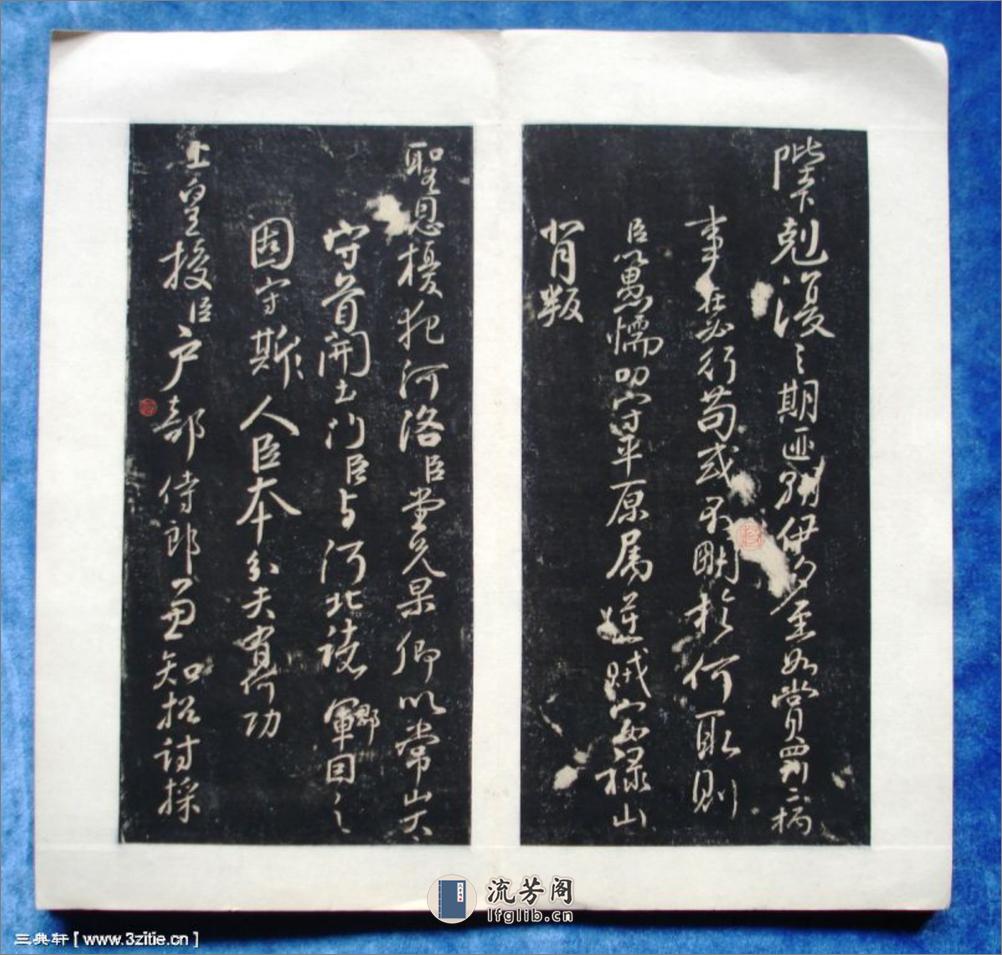 陛下剋復之期匪朝伊夕至如賞罰二柄
事在必行苟或不明於何取則
臣以愚懦叨守平原属逆賊安禄山
背叛
聖恩擾犯河洛臣堂兄杲卿以常山太
守首開土门臣与河北诸郡軍因之
固守斯人臣本分夫有何功
上皇授臣户部侍郎兼知招討採
流芳阁
lfglib.cn
三典轩[www.3zitie.cn]